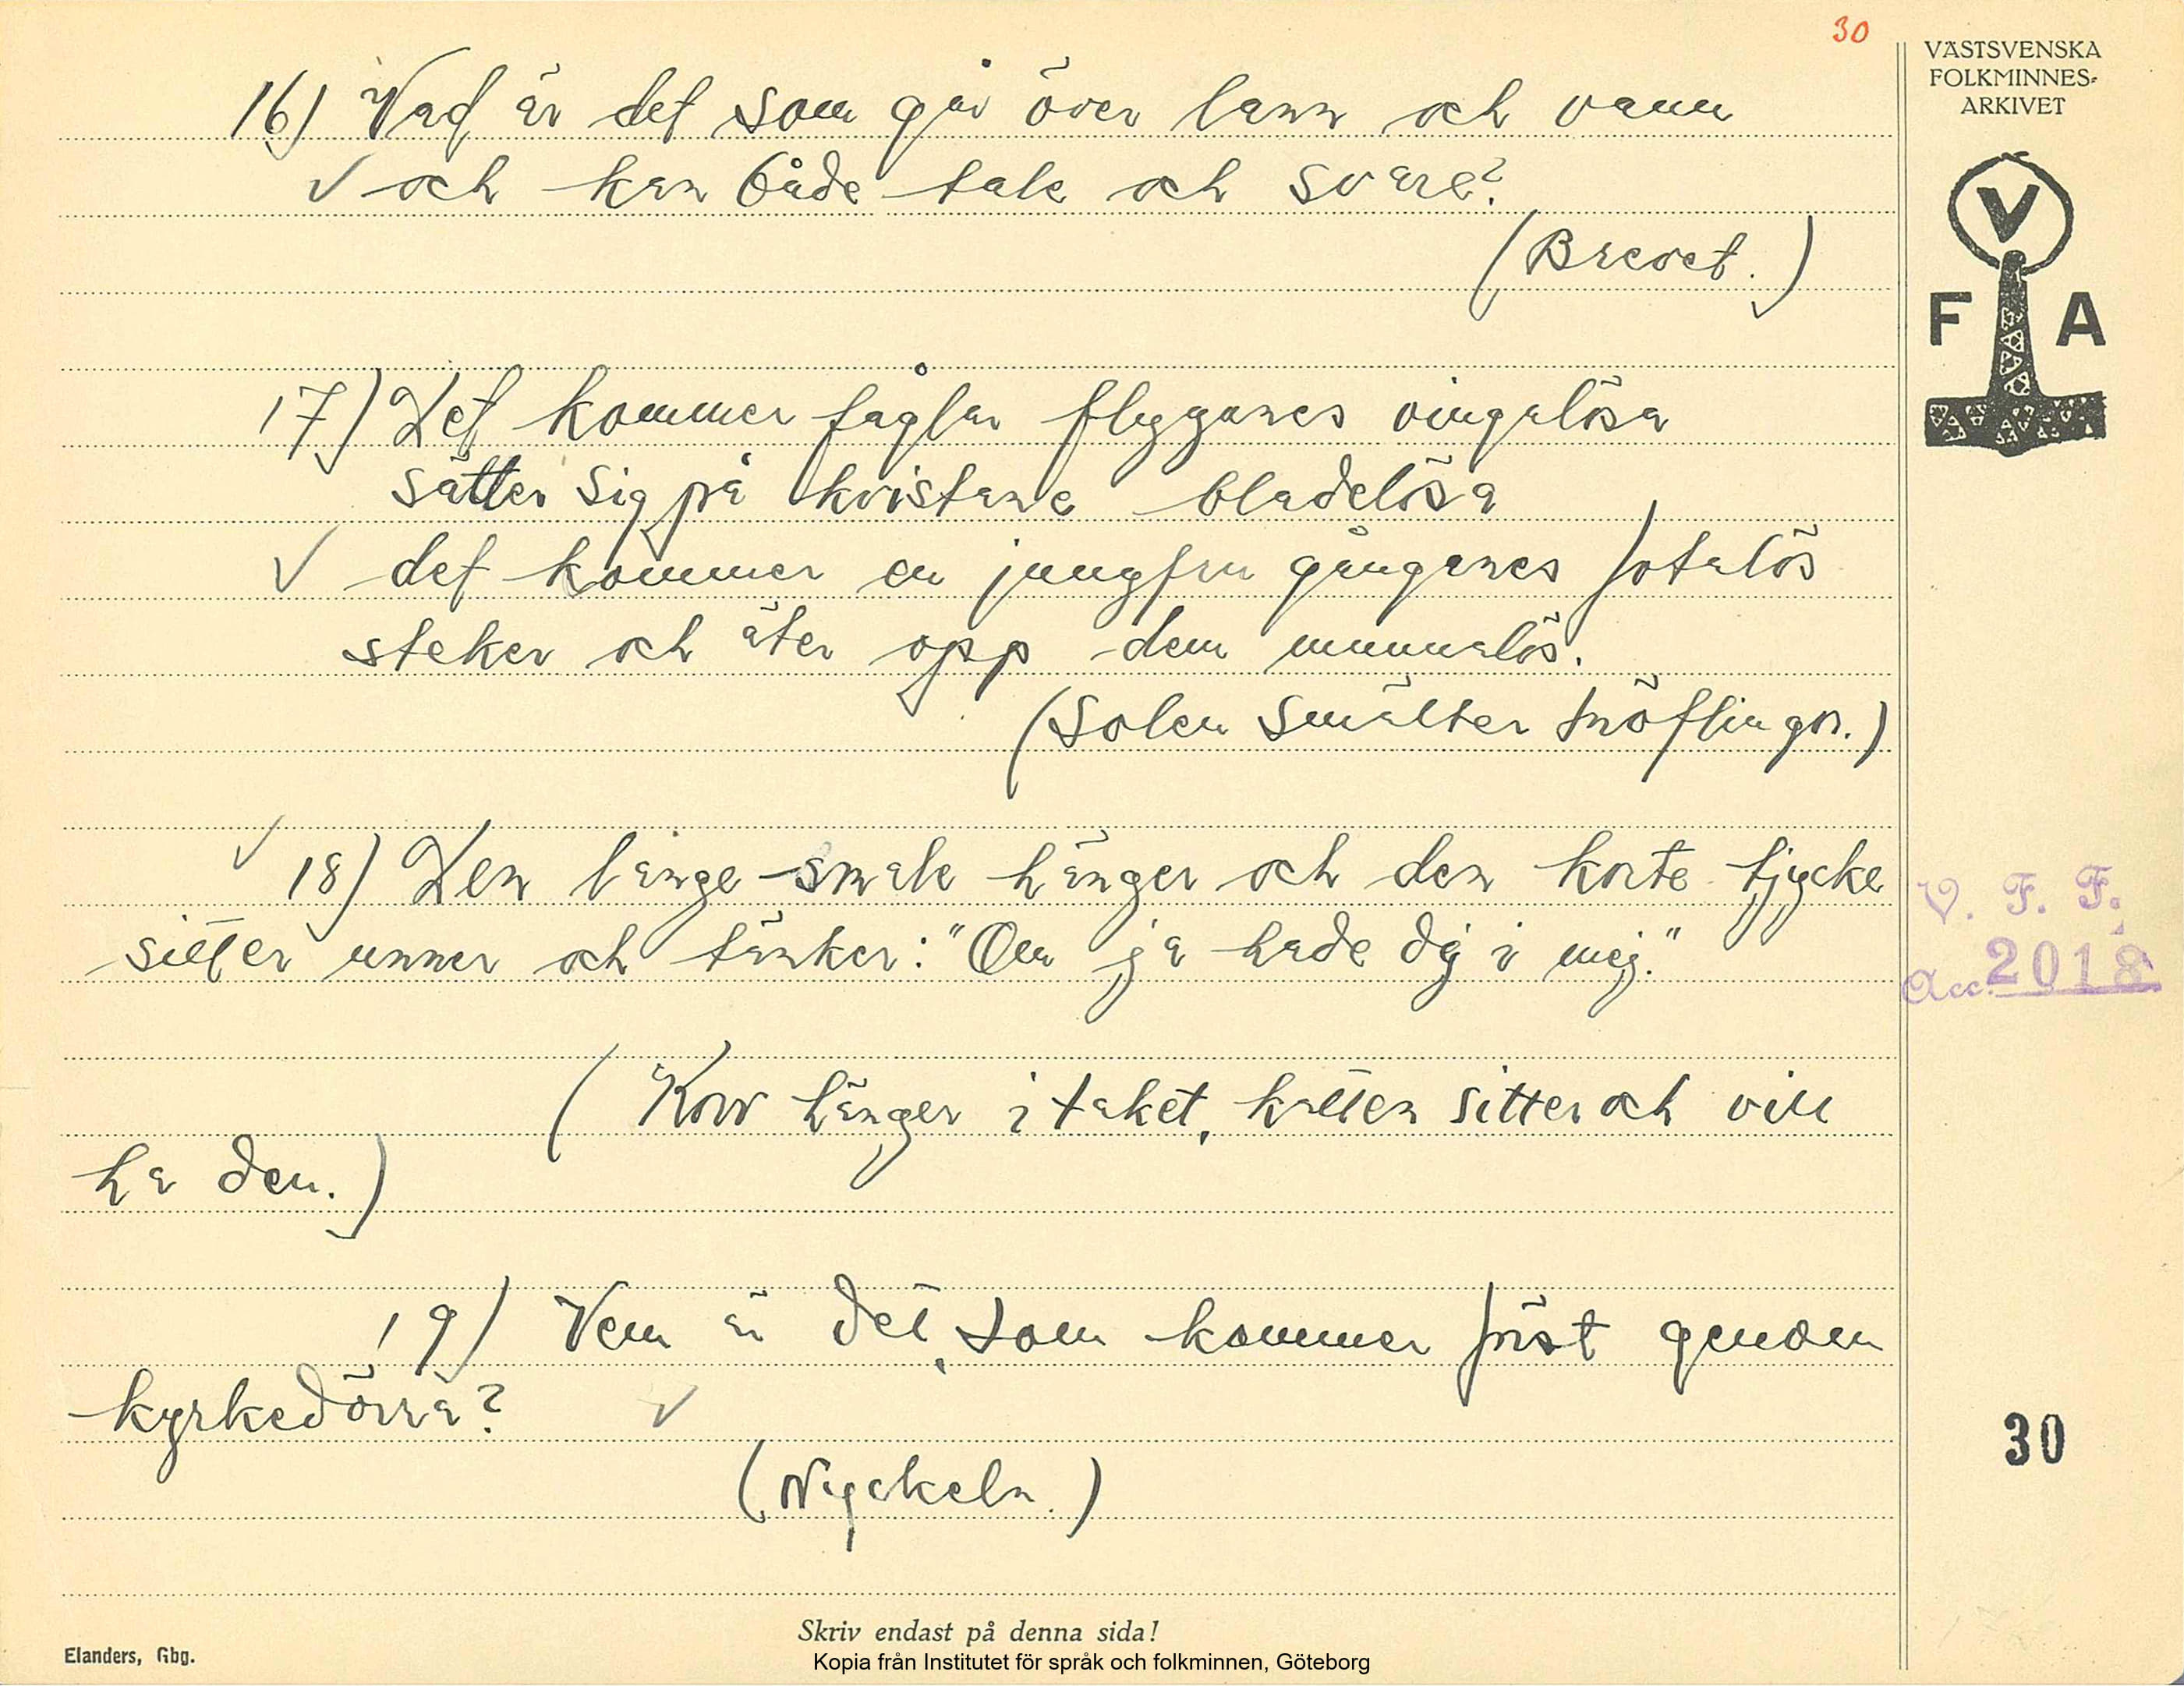 30
VÄSTSVENSKA
FOLKMINNES-
ARKIVET
V
F A
16) Vad är det som går över lann och vann
och kan både tale och svare?
(Brevet.)
17) Det kommer fåglar flyganes vingalösa
sätter sig på kvistane bladelösa
det kommer en jungfru gånganes fotalös
steker och äter opp dem munnalös.
(Solen smälter snöflingor.)
18) Den långe smale hänger och den korte tjycke
sitter unner och tänker: "Om ja hade dig i mig."
V. F. F.
Acc. 2018
(Korv hänger i taket, katten sitter och vill
ha den.)
19) Vem är det, som kommer först genom
kyrkedörra?
30
(Nyckeln.)
Skriv endast på denna sida!
Elanders, Gbg.
Kopia från Institutet för språk och folkminnen, Göteborg